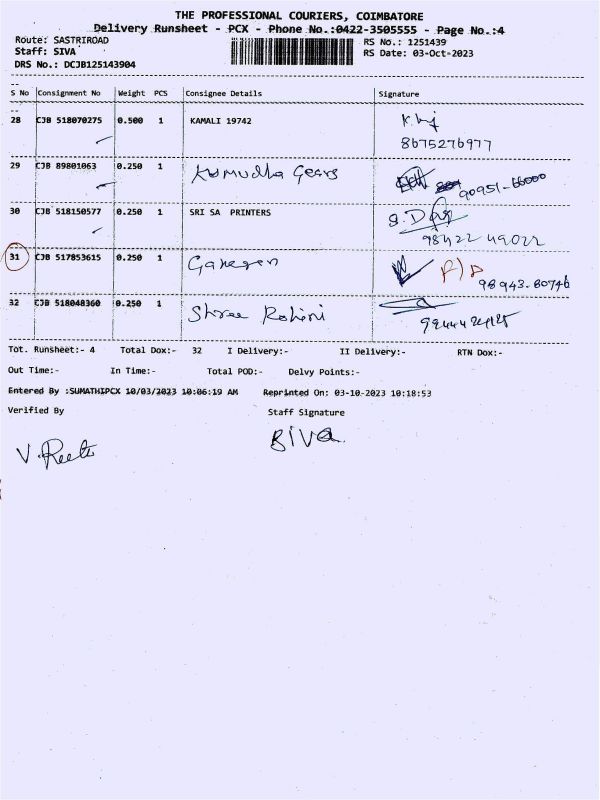 THE PROFESSIONAL COURIERS, COIMBATORE
Delivery Runsheet - PCX - Phone No.:0422-3505555 - Page No.:4
Route: SASTRIROAD
RS No.: 1251439
Staff: SIVA
RS Date: 03-Oct-2023
DRS No.: DCJB125143904
S No Consignment No Weight PCS Consignee Details Signature
28 CJB 518070275 0.500 1 KAMALI 19742
8675276977
29 CJB 89801063 0.250 1 Kumudha Gears
90951-66000
30 CJB 518150577 0.250 1 SRI SA PRINTERS
98422 49022
31 CJB 517853615 0.250 1 Ganesan
98943-80746
32 CJB 518048360 0.250 1 Shree Rohini
Tot. Runsheet:- 4 Total Dox:- 32 I Delivery:- II Delivery:- RTN Dox:-
Out Time:- In Time:- Total POD:- Delvy Points:-
Entered By :SUMATHIPCX 10/03/2023 10:06:19 AM Reprinted On: 03-10-2023 10:18:53
Verified By Staff Signature
SIVA